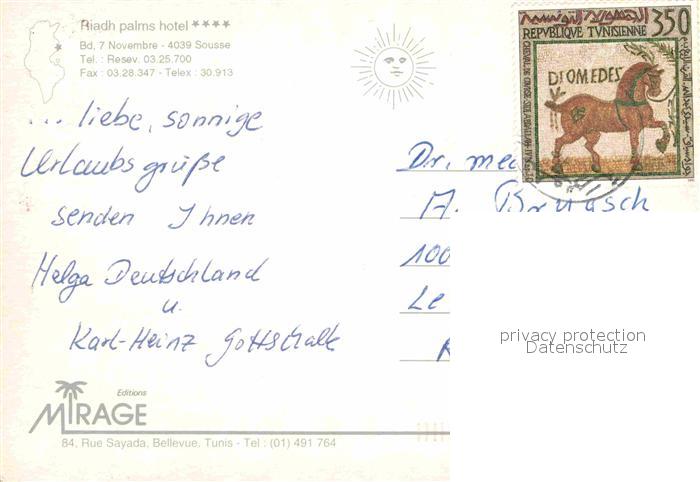 Riadh palms hotel ★★★★
Bd, 7 Novembre - 4039 Sousse
Tel. : Resev. 03.25.700
Fax : 03.28.347 - Telex : 30.913
... liebe, sonnige
Urlaubsgrüße
senden Ihnen
Helga Deutschland
u.
Karl-Heinz Gottschalk
Editions
MIRAGE
84, Rue Sayada, Bellevue, Tunis - Tel : (01) 491 764
الجمهورية التونسية
350
REPUBLIQUE TUNISIENNE
DIOMEDES
Dr. med
A.
100
Le
privacy protection
Datenschutz